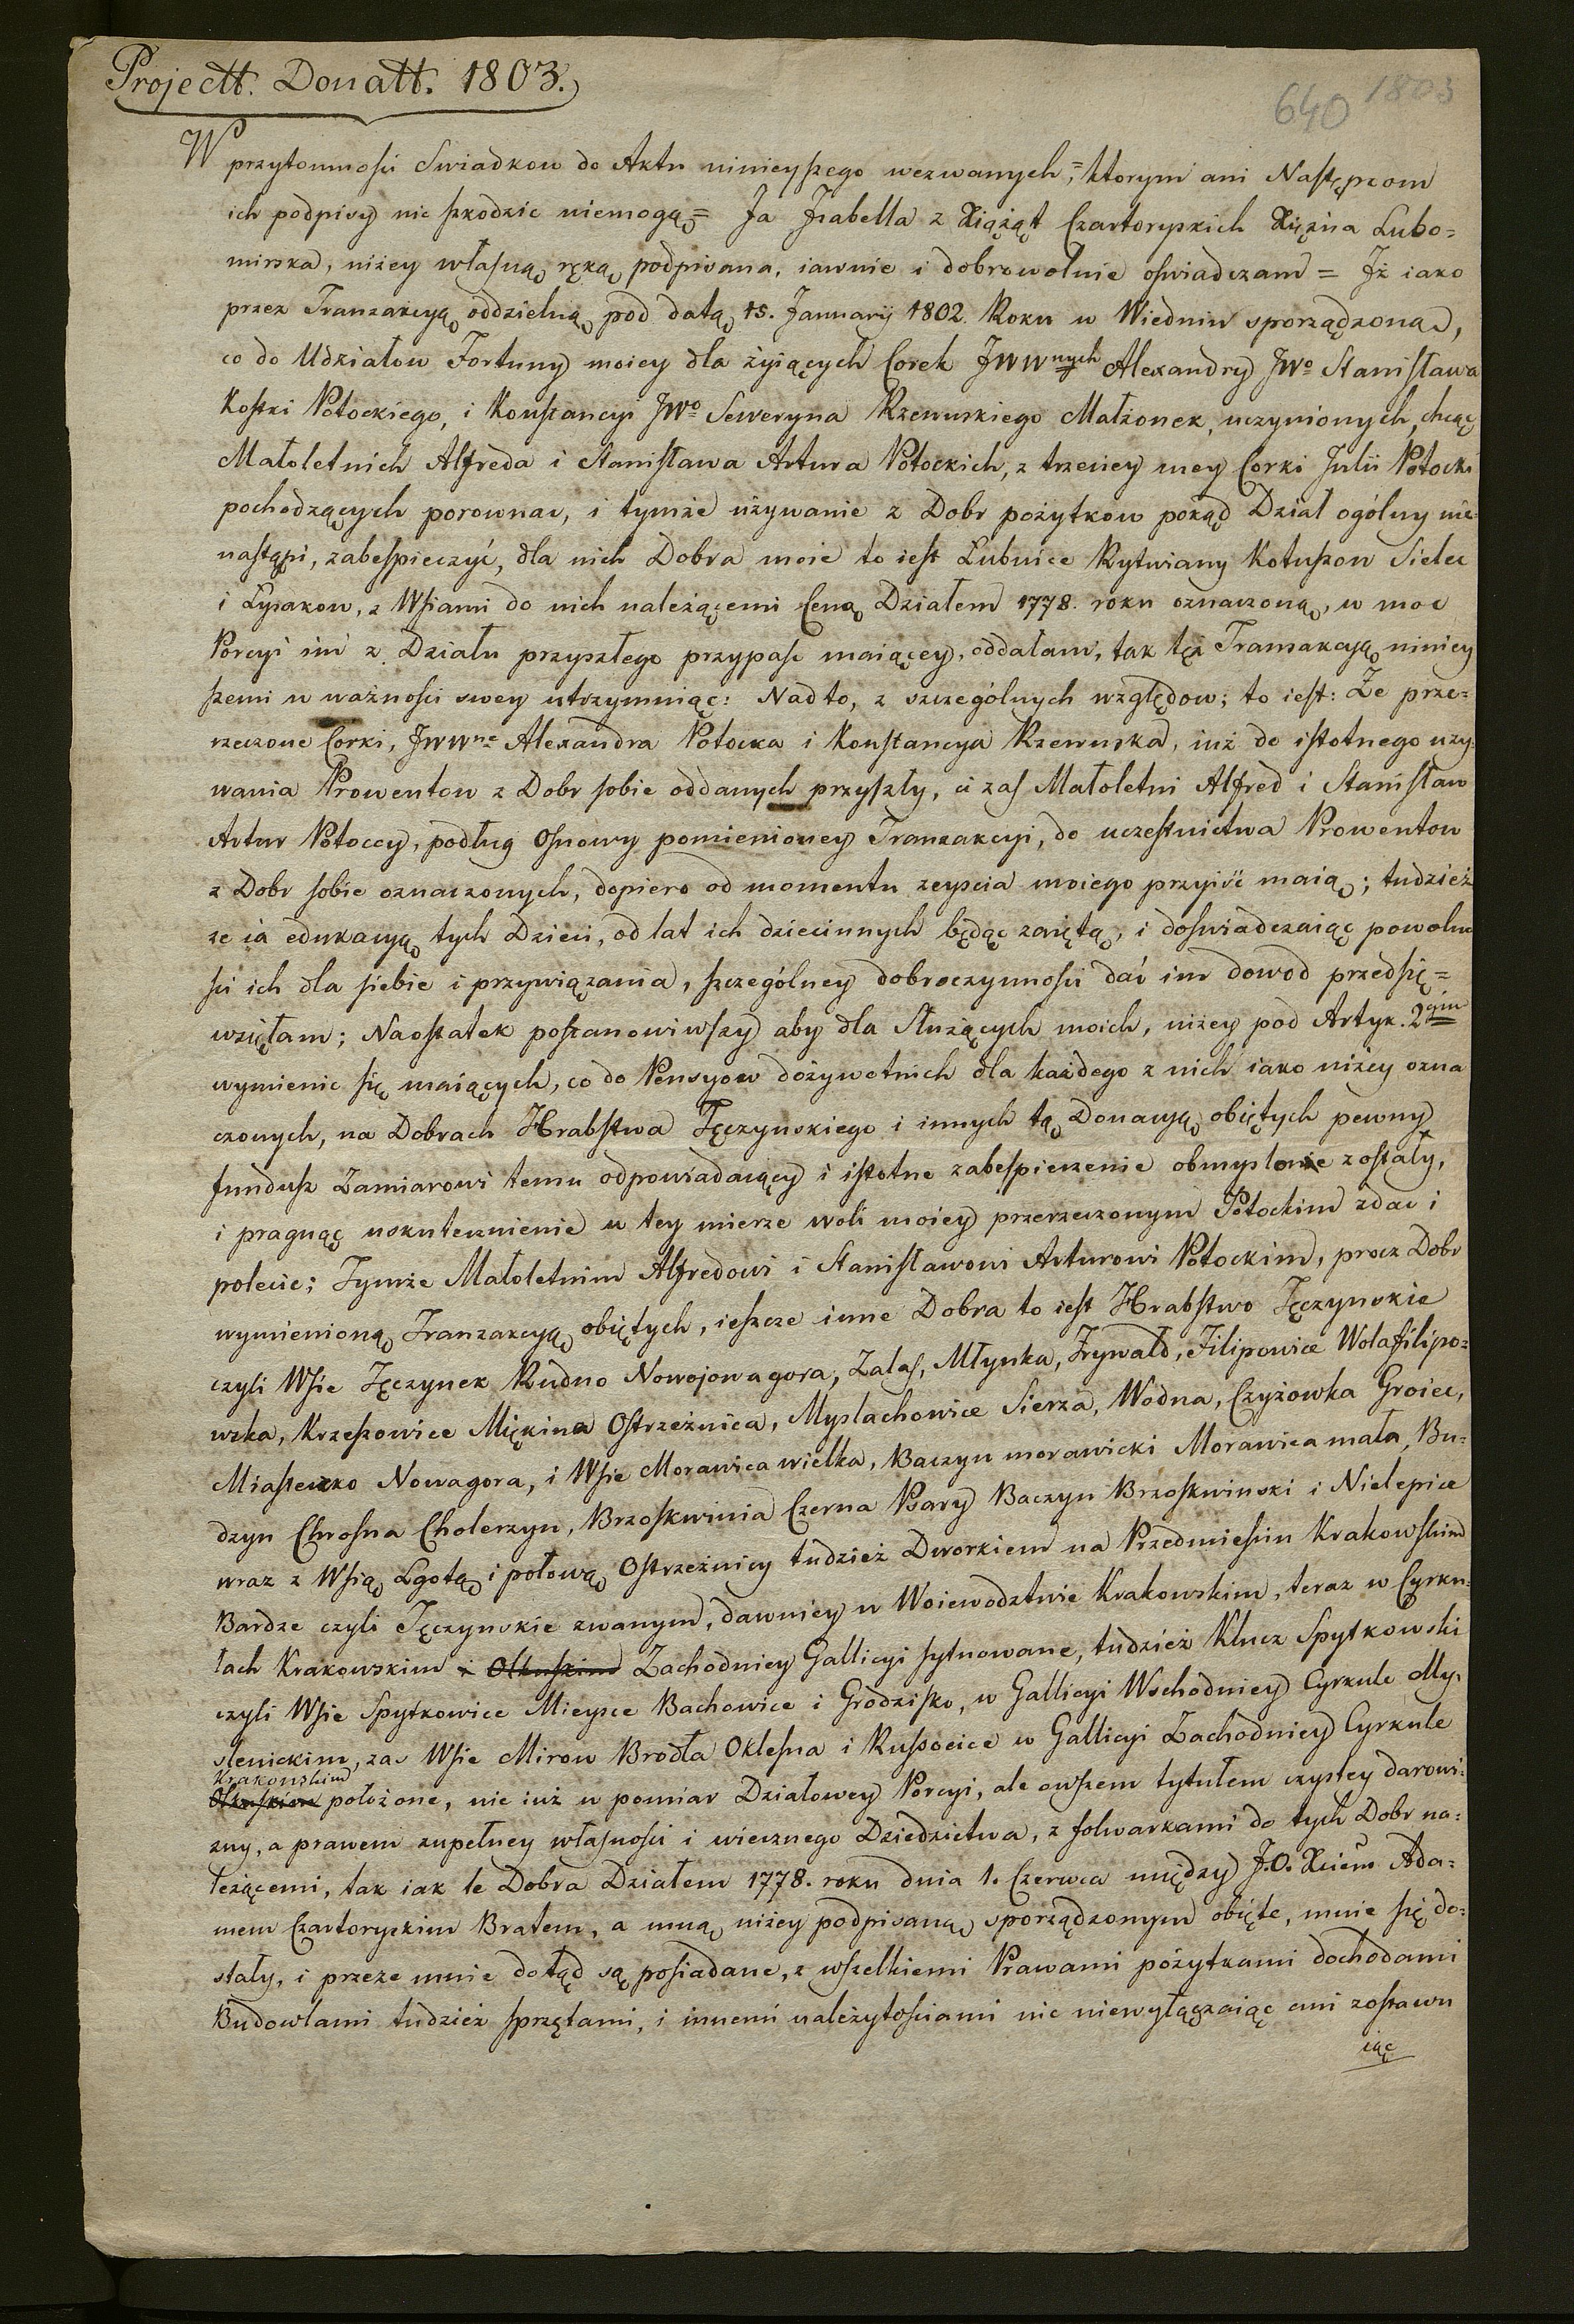 Projectt. Donatt. 1803.
640 1803
W przytomnosci Swiadkow do Aktu ninieyszego wezwanych,= ktorym ani Następcom
ich podpisy nic szkodzic niemogą= Ja Jzabella z Xiążąt Czartoryskich Xiężna Lubo=
mirska, niżey własną ręką podpisana, iawnie i dobrowolnie oswiadczam = Jż iako
przez Tranzakcyą oddzielną pod datą 15. Januarij 1802 Roku w Wiedniu sporządzoną,
co do Udziałow Fortuny moiey dla żyiących Corek JWWnych Alexandry JWo Stanisława
Kostki Potockiego, i Konstancyi JWo Seweryna Rzewuskiego Małżonek, uczynionych, chcąc
Małoletnich Alfreda i Stanisława Artura Potockich, z trzeciey mey Corki Julii Potocki
pochodzących porownac, i tymże używanie z Dobr pożytkow pokąd Dział ogólny nie=
nastąpi, zabespieczyć, dla nich Dobra moie to iest Łubnice Rytwiany Kotuszow Sielec
i Łysakow, z Wsiami do nich należącemi Ceną Działem 1778. roku oznaczoną, w moc
Porcyi im z Działu przyszłego przypaść maiącey, oddałam, tak tęż Tranzakcyą niniey
szemi w ważnosci swey utrzymuiąc: Nadto, z szczególnych względow; to iest: Że prze=
rzeczone Corki, JWWne Alexandra Potocka i Konstancya Rzewuska, iuż do istotnego uży=
wania Prowentow z Dobr sobie oddanych przyszły, ci zas Małoletni Alfred i Stanisław
Artur Potoccy, podług Osnowy pomienioney Tranzakcyi, do uczestnictwa Prowentow
z Dobr sobie oznaczonych, dopiero od momentu zeyscia moiego przyiść maią; tudzież
ze ia edukacyą tych Dzieci, od lat ich dziecinnych będąc zaiętą, i doswiadczaiąc powolno
sci ich dla siebie i przywiązania, szczególney dobroczynnosci dać im dowod przedsię=
wzięłam; Naostatek postanowiwszy aby dla Służących moich, niżey pod Artyk. 2gim
wymienic się maiących, co do Pensyow dożywotnich dla każdego z nich iako niżey ozna
czonych, na Dobrach Hrabstwa Tęczynskiego i innych tą Donacyą obiętych pewny
fundusz Zamiarowi temu odpowiadaiący i istotne zabespieczenie obmyslone zostały,
i pragnąc uskutecznienie w tey mierze woli moiey przerzeczonym Potockim zdac i
polecic; Tymże Małoletnim Alfredowi i Stanisławowi Arturowi Potockim, procz Dobr
wymienioną Tranzakcyą obiętych, ieszcze inne Dobra to iest Hrabstwo Tęczynskie
czyli Wsie Tęczynek Rudno Nowojowagora, Zalas, Młynka, Frywałd, Filipowice Wolafilipo=
wska, Krzeszowice Miękina Ostrzeżnica, Myslachowice Siersza, Wodna, Czyżowka Groiec,
Miasteczko Nowagora, i Wsie Morawica wielka, Baczyn morawicki Morawica mała, Bu=
dzyn Chrosna Cholerzyn, Brzoskwinia Czerna Psary Baczyn Brzoskwinski i Nielepice
wraz z Wsią Lgotą i połową Ostrzeżnicy tudzież Dworkiem na Przedmiesciu Krakowskim
Bardze czyli Tęczynskie zwanym, dawniey w Woiewodztwie Krakowskim, teraz w Cyrku=
łach Krakowskim i Olkuskim Zachodniey Gallicyi sytuowane, tudzież Klucz Spytkowski
czyli Wsie Spytkowice Mieysce Bachowice i Grodzisko, w Gallicyi Wschodniey Cyrkule My=
slenickim, zas Wsie Mirow Brodła Oklesna i Russocice w Gallicyi Zachodniey Cyrkule
Krakowskim
Olkuskim położone, nie iuż w pomiar Działowey Porcyi, ale owszem tytułem czystey darowi=
zny, a prawem zupełney własnosci i wiecznego Dziedzictwa, z folwarkami do tych Dobr na=
leżącemi, tak iak te Dobra Działem 1778. roku dnia 1. Czerwca między J.O. Xciem Ada=
mem Czartoryskim Bratem, a mną niżey podpisaną sporządzonym obięte, mnie się do=
stały, i przeze mnie dotąd są posiadane, z wszelkiemi Prawami pożytkami dochodami
Budowlami tudzież sprzętami, i innemi należytosciami nic niewyłączaiąc ani zostawu
iąc